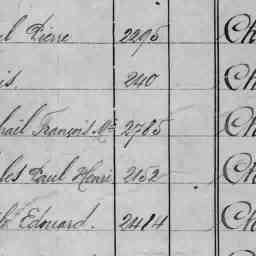 el Pierre 2295 Ch
is. 240 Ch
hail François Me 2785 Ch
les Paul Henri 2152 Ch
ph Edouard. 2414 Ch